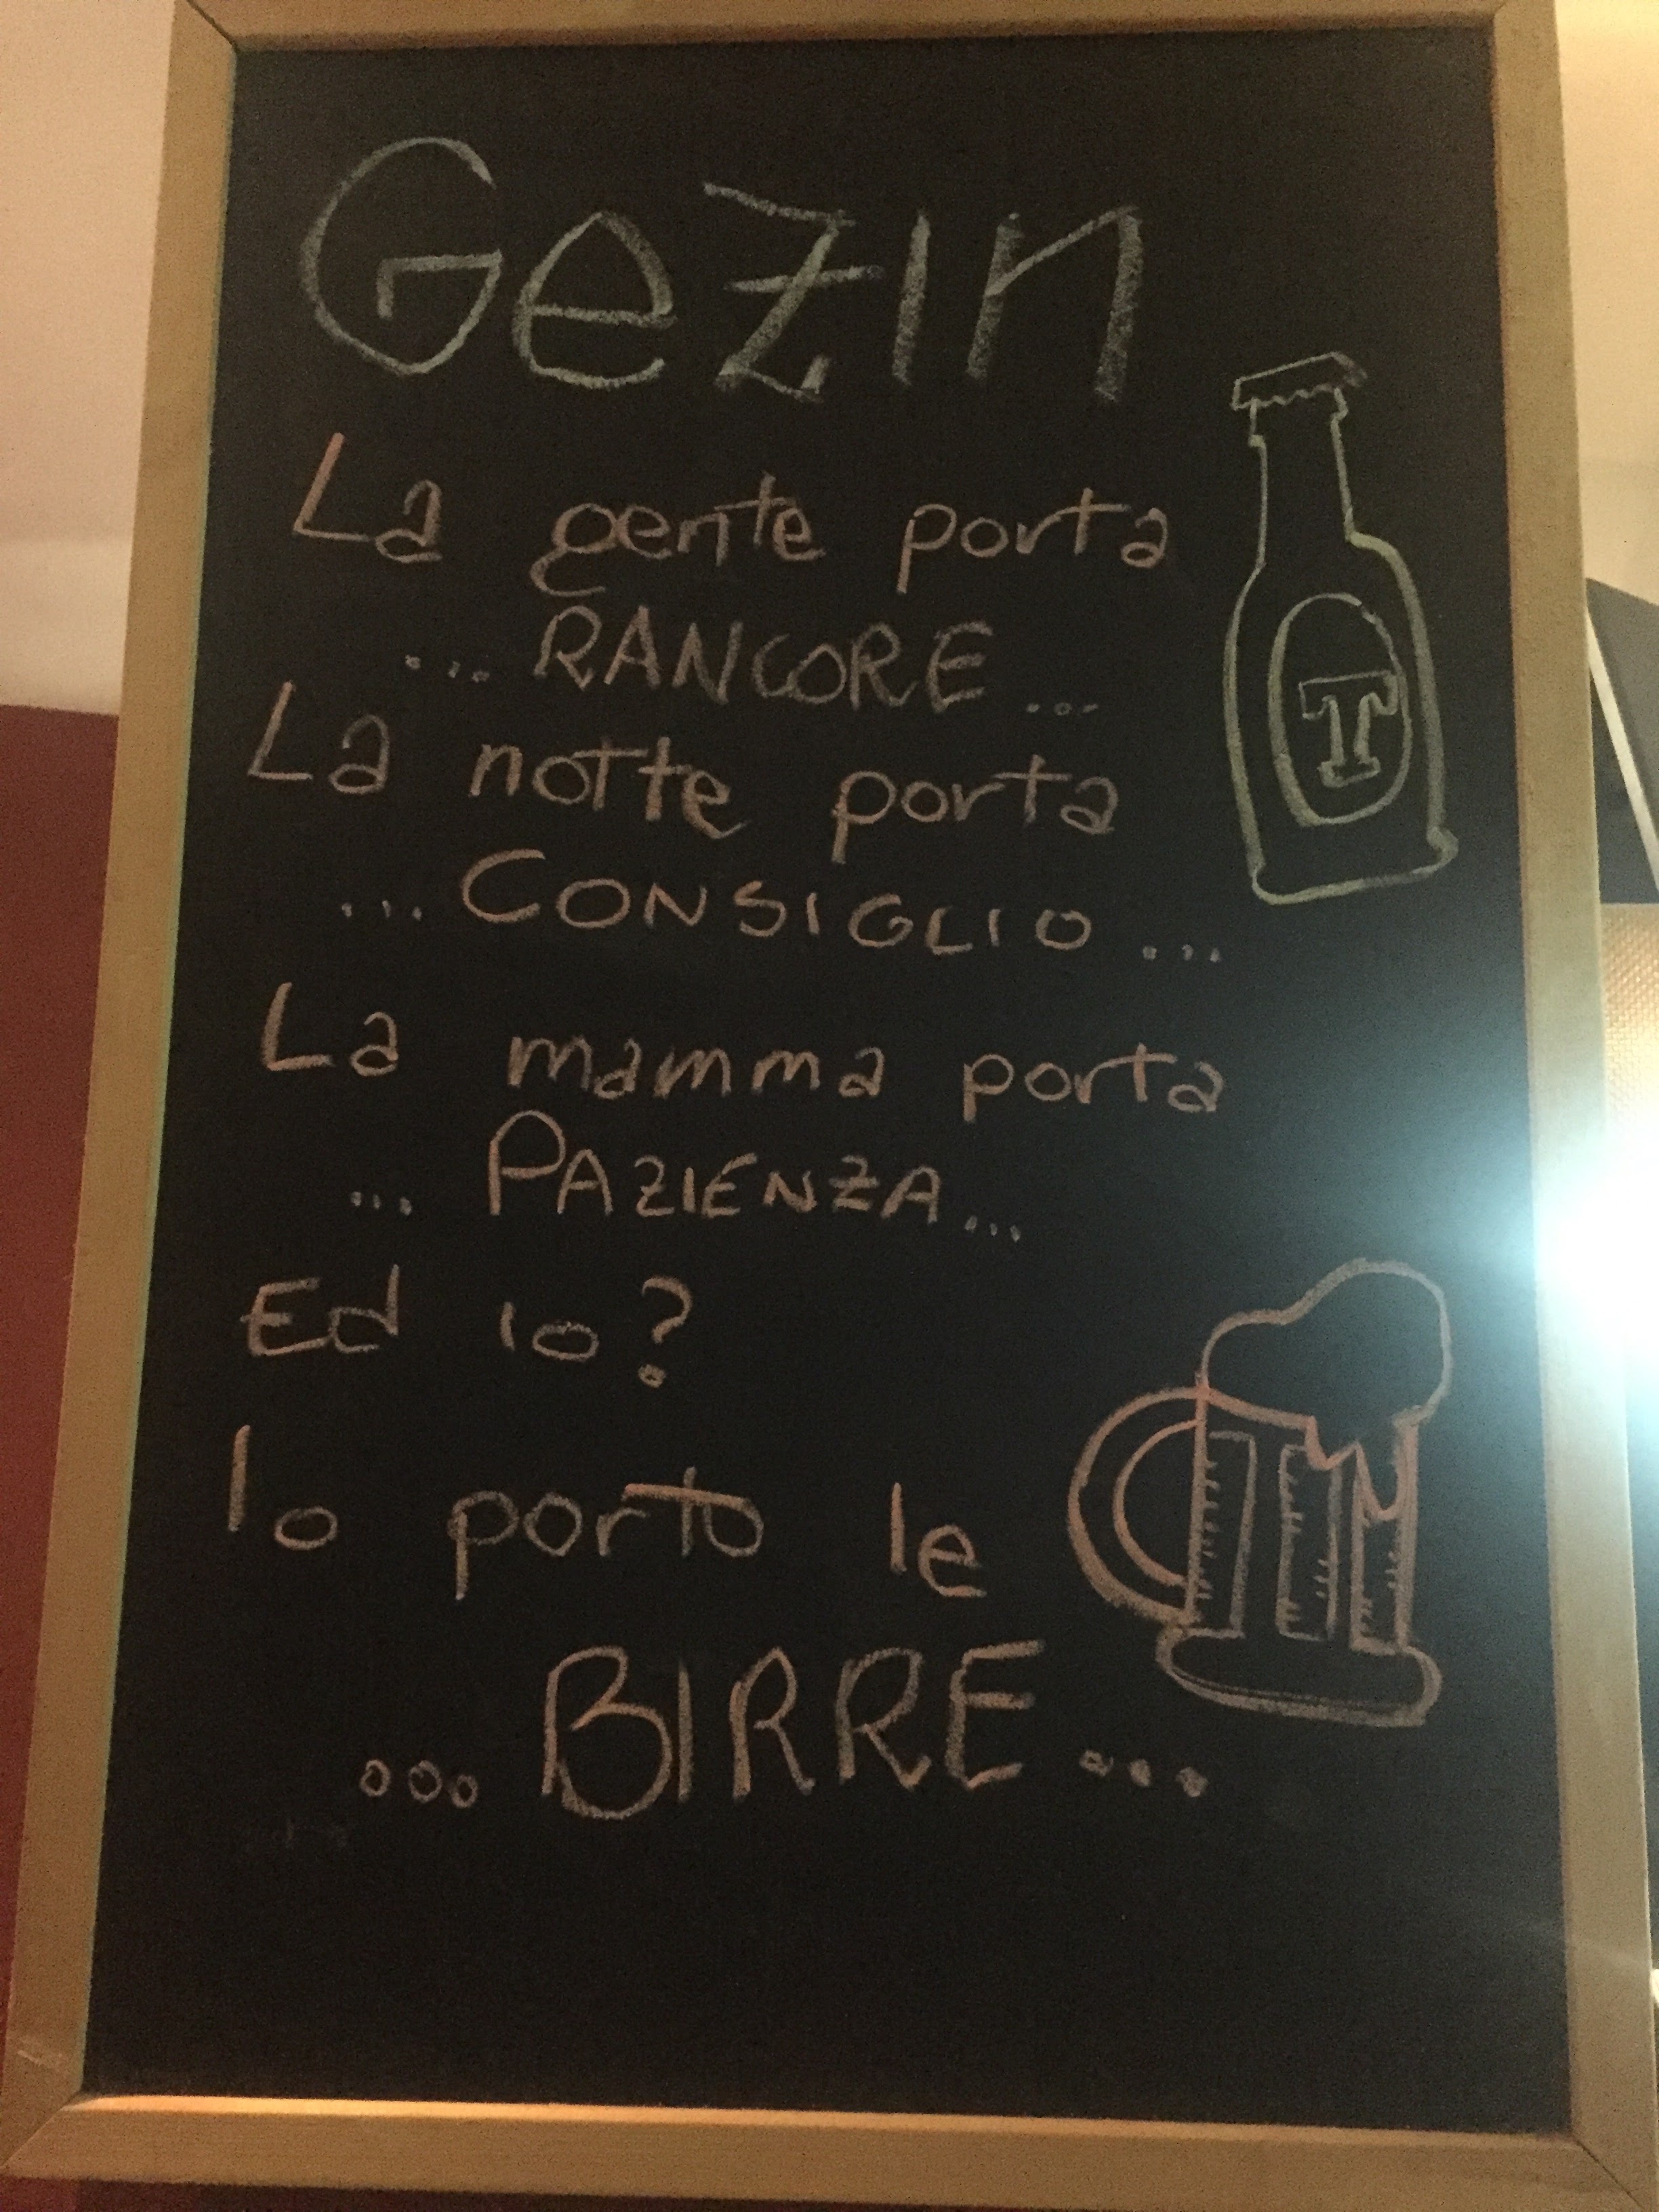 GeZIn
La gente porta
... RANCORE ...
La notte porta
... CONSIGLIO ...
La mamma porta
... PAZIENZA ...
Ed io?
Io porto le
... BIRRE ...
T